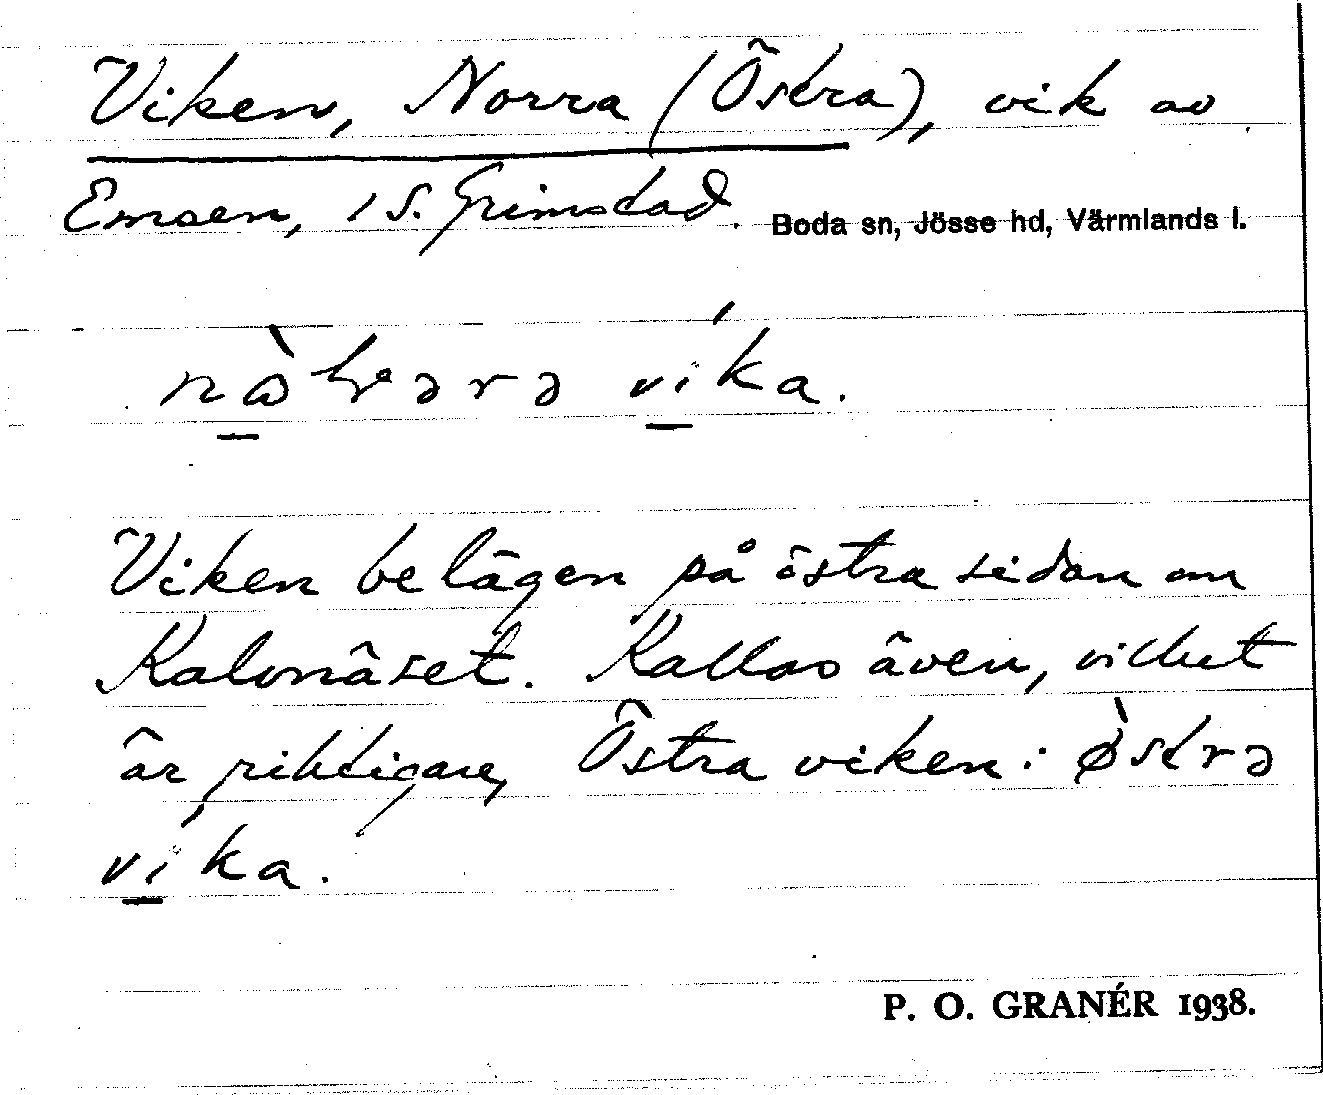 Viken, Norra (Östra), vik av
Emsen, i S. Grimstad. Boda sn, Jösse hd, Värmlands l.
víka.
Viken belägen på östra sidan om
Kalvnäset. Kallas även, vilket
är riktigare, Östra viken: ø̀strə
víka.
P. O. GRANÉR 1938.